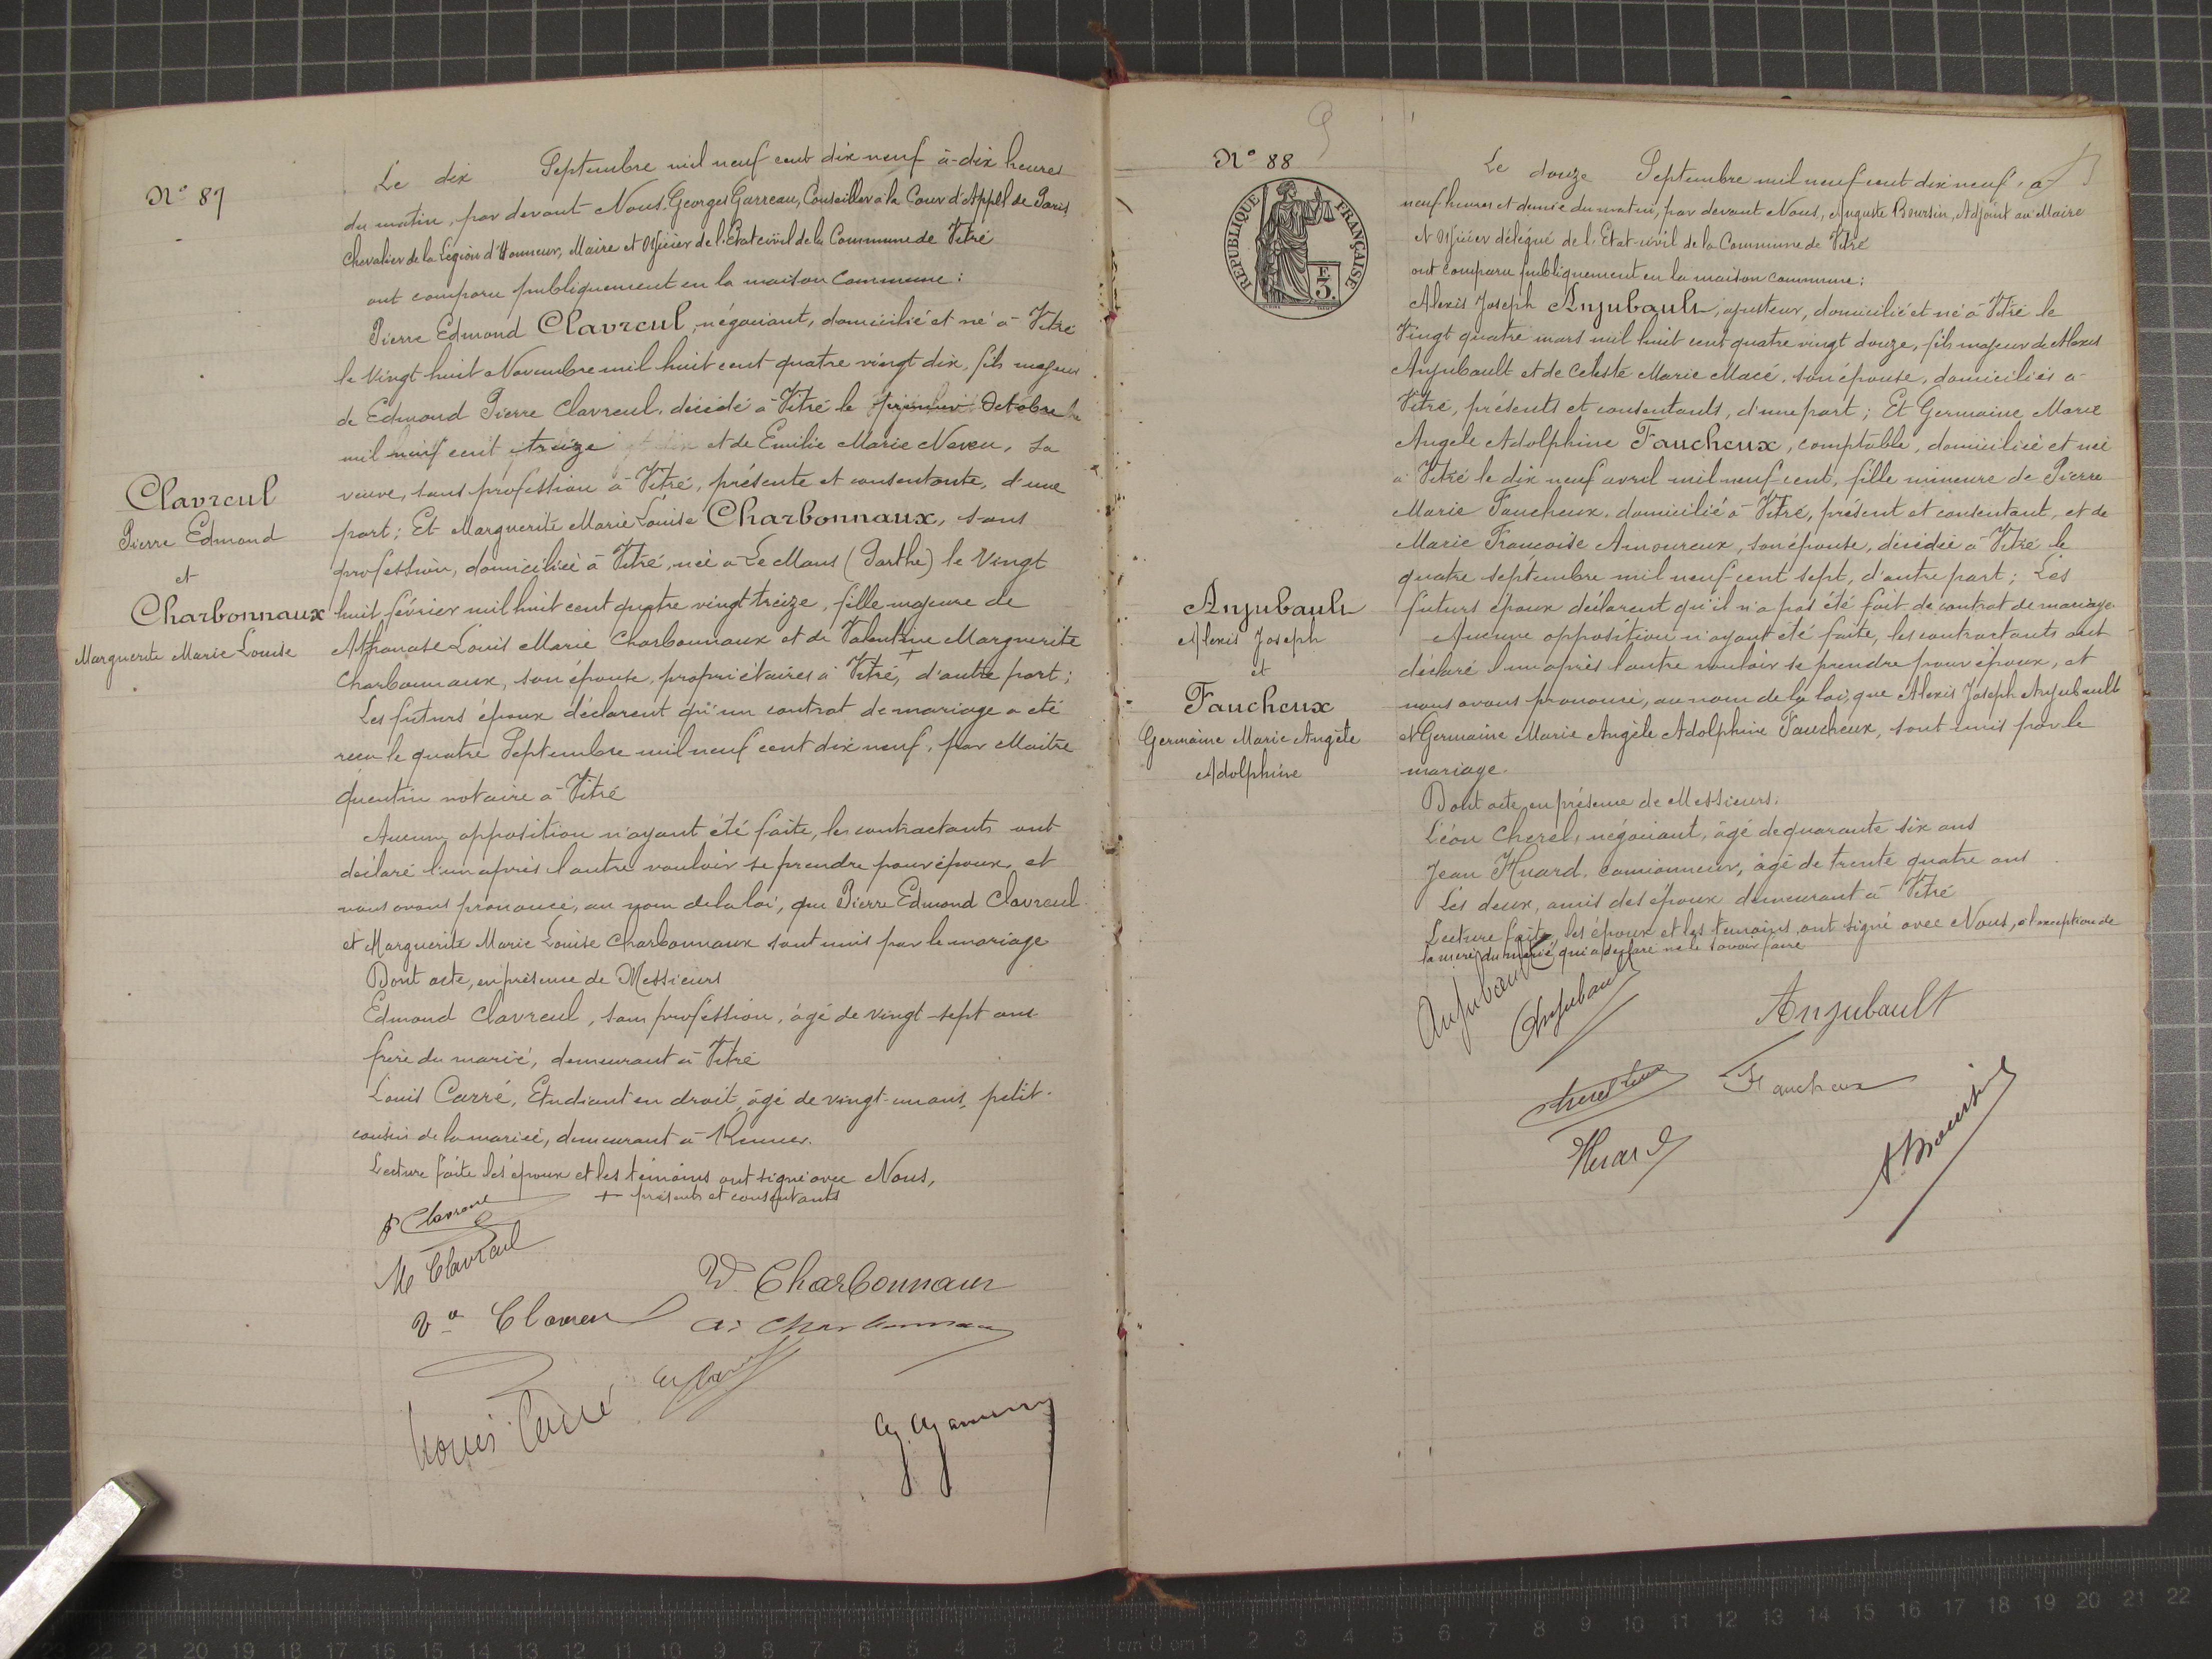 N° 87
Clavreul
Pierre Edmond
et
Charbonnaux
Marguerite Marie Louise
Le dix Septembre mil neuf cent dix neuf à dix heures
du matin, par devant Nous, Georges Garreau, Conseiller à la Cour d'Appel de Paris
Chevalier de la Légion d'Honneur, Maire et Officier de l'Etat civil de la Commune de Vitré
ont comparu publiquement en la maison commune :
Pierre Edmond Clavreul, négociant, domicilié et né à Vitré
le Vingt huit Novembre mil huit cent quatre vingt dix, fils majeur
de Edmond Pierre Clavreul, décédé à Vitré le premier Octobre
mil neuf cent treize et de Emilie Marie Neveu, sa
veuve, sans profession à Vitré, présente et consentante, d'une
part ; Et Marguerite Marie Louise Charbonnaux, sans
profession, domiciliée à Vitré, née à Le Mans (Sarthe) le Vingt
huit février mil huit cent quatre vingt treize, fille majeure de
Athanase Louis Marie Charbonnaux et de Valentine Marguerite
Charbonnaux, son épouse, propriétaires à Vitré, + d'autre part ;
Les futurs époux déclarent qu'un contrat de mariage a été
reçu le quatre Septembre mil neuf cent dix neuf, par Maitre
Quentin notaire à Vitré
Aucune opposition n'ayant été faite, les contractants ont
déclaré l'un après l'autre vouloir se prendre pour époux, et
nous avons prononcé, au nom de la loi, que Pierre Edmond Clavreul
et Marguerite Marie Louise Charbonnaux sont unis par le mariage
Dont acte, en présence de Messieurs
Edmond Clavreul, sans profession, âgé de vingt-sept ans
frère du marié, demeurant à Vitré
Louis Carré, Etudiant en droit, âgé de vingt-un ans, petit-
cousin de la mariée, demeurant à Rennes.
Lecture faite les époux et les témoins ont signé avec Nous,
+ présents et consentants
P Clavreul
M Clavreul
V. Charbonnaux
Vve Clavreul
A. Charbonnaux
Louis Carré
G. Garreau
N° 88
REPUBLIQUE FRANÇAISE
F.
3.
Anjubault
Alexis Joseph
et
Faucheux
Germaine Marie Angèle
Adolphine
Le douze Septembre mil neuf cent dix neuf, à
neuf heures et demie du matin, par devant Nous, Auguste Boursin, Adjoint au Maire
et Officier délégué de l'Etat-civil de la Commune de Vitré
ont comparu publiquement en la maison commune :
Alexis Joseph Anjubault, ajusteur, domicilié et né à Vitré le
Vingt quatre mars mil huit cent quatre vingt douze, fils majeur de Alexis
Anjubault et de Celeste Marie Macé, son épouse, domiciliés à
Vitré, présents et consentants, d'une part ; Et Germaine Marie
Angele Adolphine Faucheux, comptable, domiciliée et née
à Vitré le dix neuf avril mil neuf cent, fille mineure de Pierre
Marie Faucheux, domicilié à Vitré, présent et consentant, et de
Marie Françoise Amoureux, son épouse, décédée à Vitré le
quatre septembre mil neuf cent sept, d'autre part ; Les
futurs époux déclarent qu'il n'a pas été fait de contrat de mariage.
Aucune opposition n'ayant été faite, les contractants ont
déclaré l'un après l'autre vouloir se prendre pour époux, et
nous avons prononcé, au nom de la loi, que Alexis Joseph Anjubault
et Germaine Marie Angèle Adolphine Faucheux, sont unis par le
mariage.
Dont acte, en présence de Messieurs.
Léon Cherel, négociant, âgé de quarante six ans
Jean Huard, camionneur, âgé de trente quatre ans
Les deux, amis des époux demeurant à Vitré
Lecture faite, les époux et les témoins, ont signé avec Nous, à l'exception de
la mère du marié qui a déclaré ne le savoir faire
Anjubault
Anjubault
Anjubault
Faucheux
Huard
A. Boursin